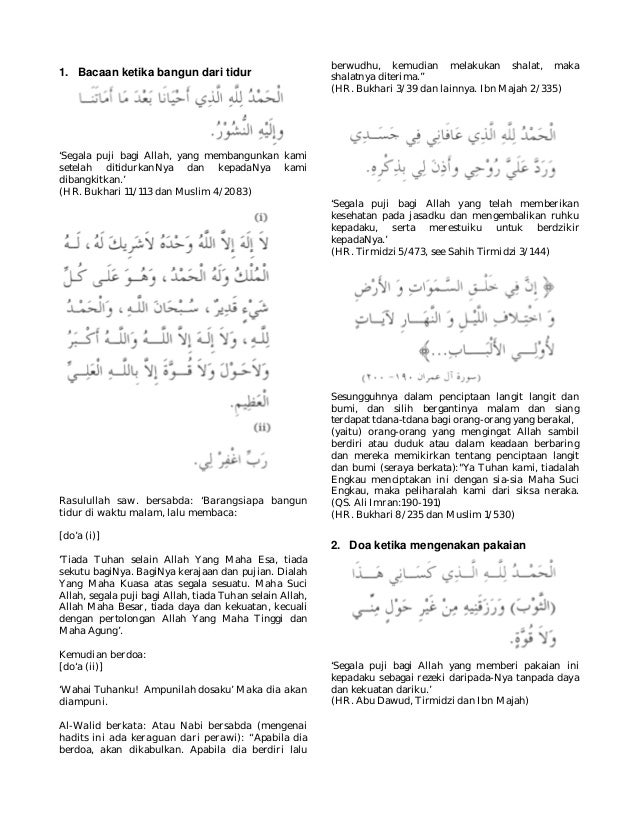 1. Bacaan ketika bangun dari tidur
الْحَمْدُ لِلَّهِ الَّذِي أَحْيَانَا بَعْدَ مَا أَمَاتَنَـــا
وإِلَيْهِ النُّشُوْرُ.
‘Segala puji bagi Allah, yang membangunkan kami
setelah ditidurkanNya dan kepadaNya kami
dibangkitkan.’
(HR. Bukhari 11/113 dan Muslim 4/2083)
(i)
لاَ إِلَهَ إِلاَّ اللَّهُ وَحْدَهُ لاَشَرِيكَ لَهُ ، لَــهُ
الْمُلْكُ وَلَهُ الْحَمْدُ ، وَهُــوَ عَلَــى كُــلِّ
شَيْءٍ قَدِيرٌ ، سُـبْحَانَ اللَّـهِ ، وَالْحَمْـدُ
لِلَّـهِ ، وَلاَ إِلَـهَ إِلاَّ اللَّـــهُ وَاللَّــهُ أَكْــبَرُ
وَلاَحَوْلَ وَلاَ قُـــوَّةَ إِلاَّ بِاللَّــهِ الْعَلِـــيِّ
الْعَظِيمِ.
(ii)
رَبِّ اغْفِرْ لِي.
Rasulullah saw. bersabda: ‘Barangsiapa bangun
tidur di waktu malam, lalu membaca:
[do’a (i)]
‘Tiada Tuhan selain Allah Yang Maha Esa, tiada
sekutu bagiNya. BagiNya kerajaan dan pujian. Dialah
Yang Maha Kuasa atas segala sesuatu. Maha Suci
Allah, segala puji bagi Allah, tiada Tuhan selain Allah,
Allah Maha Besar, tiada daya dan kekuatan, kecuali
dengan pertolongan Allah Yang Maha Tinggi dan
Maha Agung’.
Kemudian berdoa:
[do’a (ii)]
‘Wahai Tuhanku! Ampunilah dosaku’ Maka dia akan
diampuni.
Al-Walid berkata: Atau Nabi bersabda (mengenai
hadits ini ada keraguan dari perawi): “Apabila dia
berdoa, akan dikabulkan. Apabila dia berdiri lalu
berwudhu, kemudian melakukan shalat, maka
shalatnya diterima.”
(HR. Bukhari 3/39 dan lainnya. Ibn Majah 2/335)
الْحَمْدُ لِلَّهِ الَّذِي عَافَانِي فِي جَسَــدِي
وَرَدَّ عَلَيَّ رُوْحِي وَأَذِنَ لِي بِذِكْرِهِ.
‘Segala puji bagi Allah yang telah memberikan
kesehatan pada jasadku dan mengembalikan ruhku
kepadaku, serta merestuiku untuk berdzikir
kepadaNya.’
(HR. Tirmidzi 5/473, see Sahih Tirmidzi 3/144)
﴿ إِنَّ فِي خَلْـقِ السَّـمَوَاتِ وَ الأَرْضِ
وَ اخْتِـلافِ اللَّيْـلِ وَ النَّهَــارِ لآيَــاتٍ
لأُوْلِـــي الأَلْبَـــابِ...﴾
(سورة آل عمران ١٩٠- ٢٠٠)
Sesungguhnya dalam penciptaan langit langit dan
bumi, dan silih bergantinya malam dan siang
terdapat tdana-tdana bagi orang-orang yang berakal,
(yaitu) orang-orang yang mengingat Allah sambil
berdiri atau duduk atau dalam keadaan berbaring
dan mereka memikirkan tentang penciptaan langit
dan bumi (seraya berkata):"Ya Tuhan kami, tiadalah
Engkau menciptakan ini dengan sia-sia Maha Suci
Engkau, maka peliharalah kami dari siksa neraka.
(QS. Ali Imran:190-191)
(HR. Bukhari 8/235 dan Muslim 1/530)
2. Doa ketika mengenakan pakaian
الْحَمْــدُ لِلَّــهِ الَّــذِي كَسَــانِي هَـــذَا
(الثَّوْبَ) وَرَزَقَنِيهِ مِنْ غَيْرِ حَوْلٍ مِنِّــي
وَلاَ قُوَّةٍ.
‘Segala puji bagi Allah yang memberi pakaian ini
kepadaku sebagai rezeki daripada-Nya tanpada daya
dan kekuatan dariku.’
(HR. Abu Dawud, Tirmidzi dan Ibn Majah)